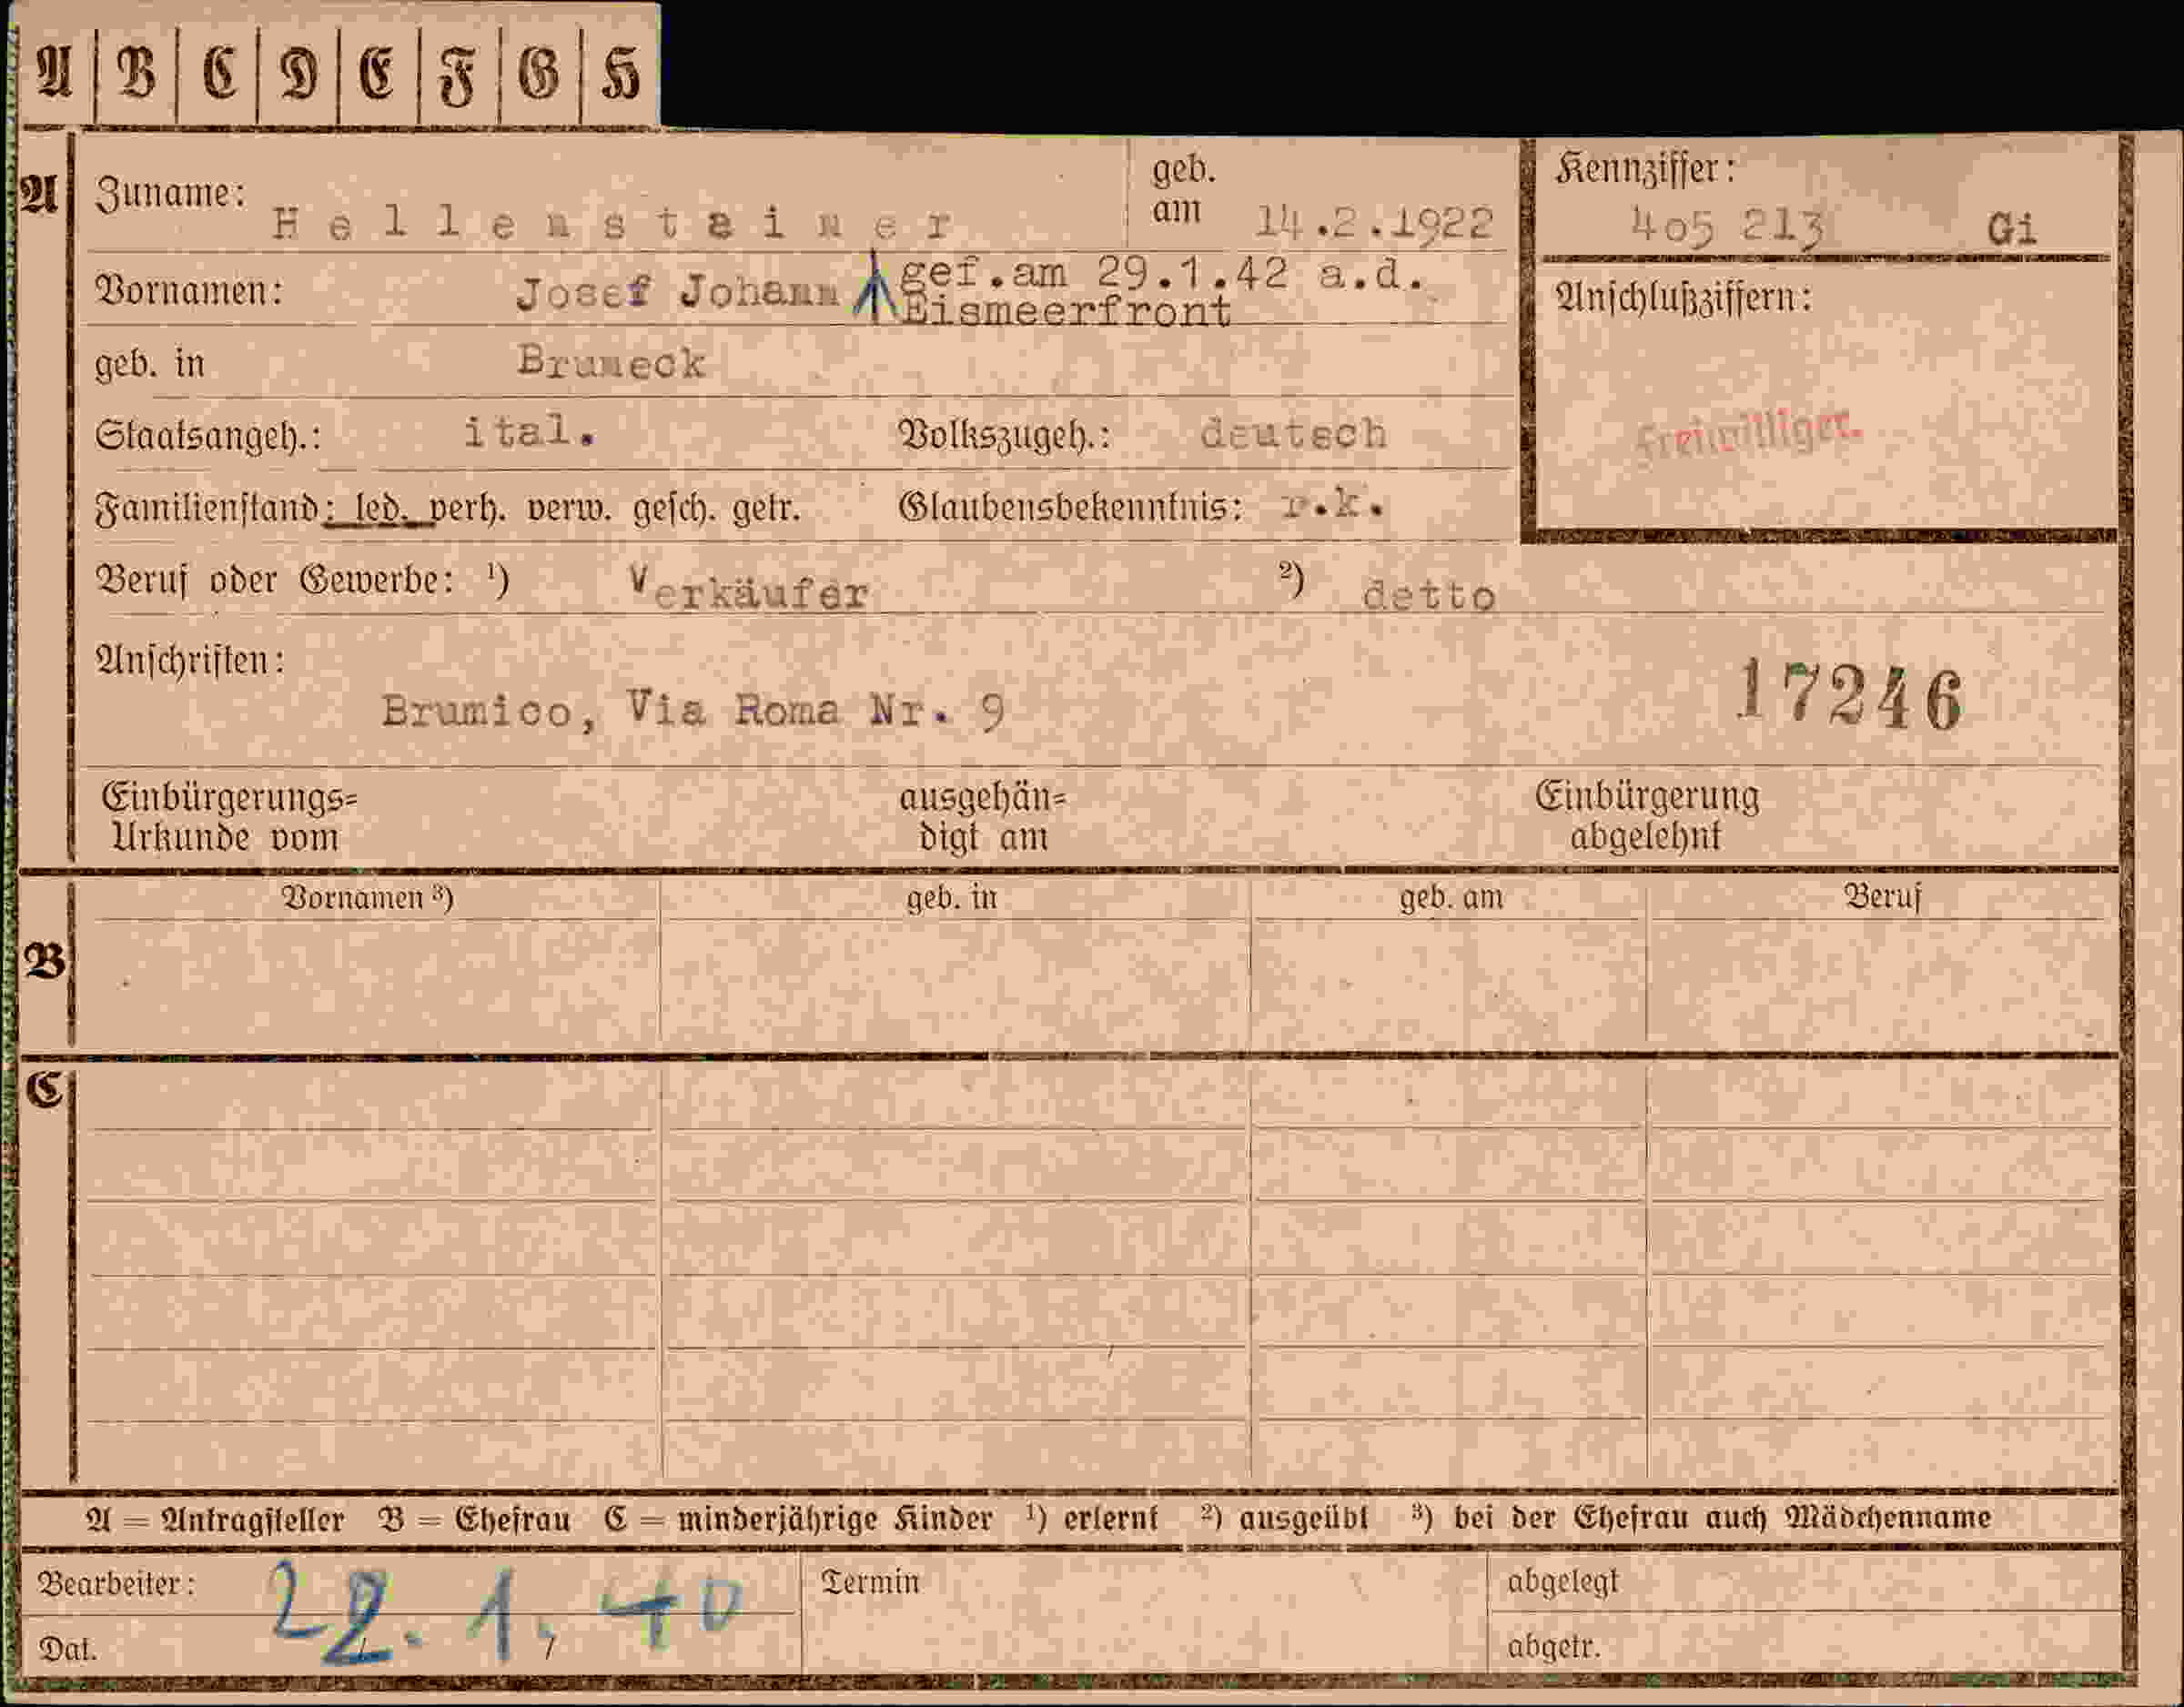 A B C D E F G H
A Zuname: Hellensteiner geb. am 14.2.1922
Kennziffer: 405 213 Gi
Vornamen: Josef Johann gef.am 29.1.42 a.d. Eismeerfront
Anschlußziffern:
Freiwilliger.
geb. in Bruneck
Staatsangeh.: ital. Volkszugeh.: deutsch
Familienstand: led. verh. verw. gesch. getr. Glaubensbekenntnis: r.k.
Beruf oder Gewerbe: ¹) Verkäufer ²) detto
Anschriften:
Brunico, Via Roma Nr. 9
17246
Einbürgerungs= Urkunde vom ausgehän= digt am Einbürgerung abgelehnt
B Vornamen ³) geb. in geb. am Beruf
C
A = Antragsteller B = Ehefrau C = minderjährige Kinder ¹) erlernt ²) ausgeübt ³) bei der Ehefrau auch Mädchenname
Bearbeiter: Termin abgelegt
Dat. 22. 1. 40 abgetr.